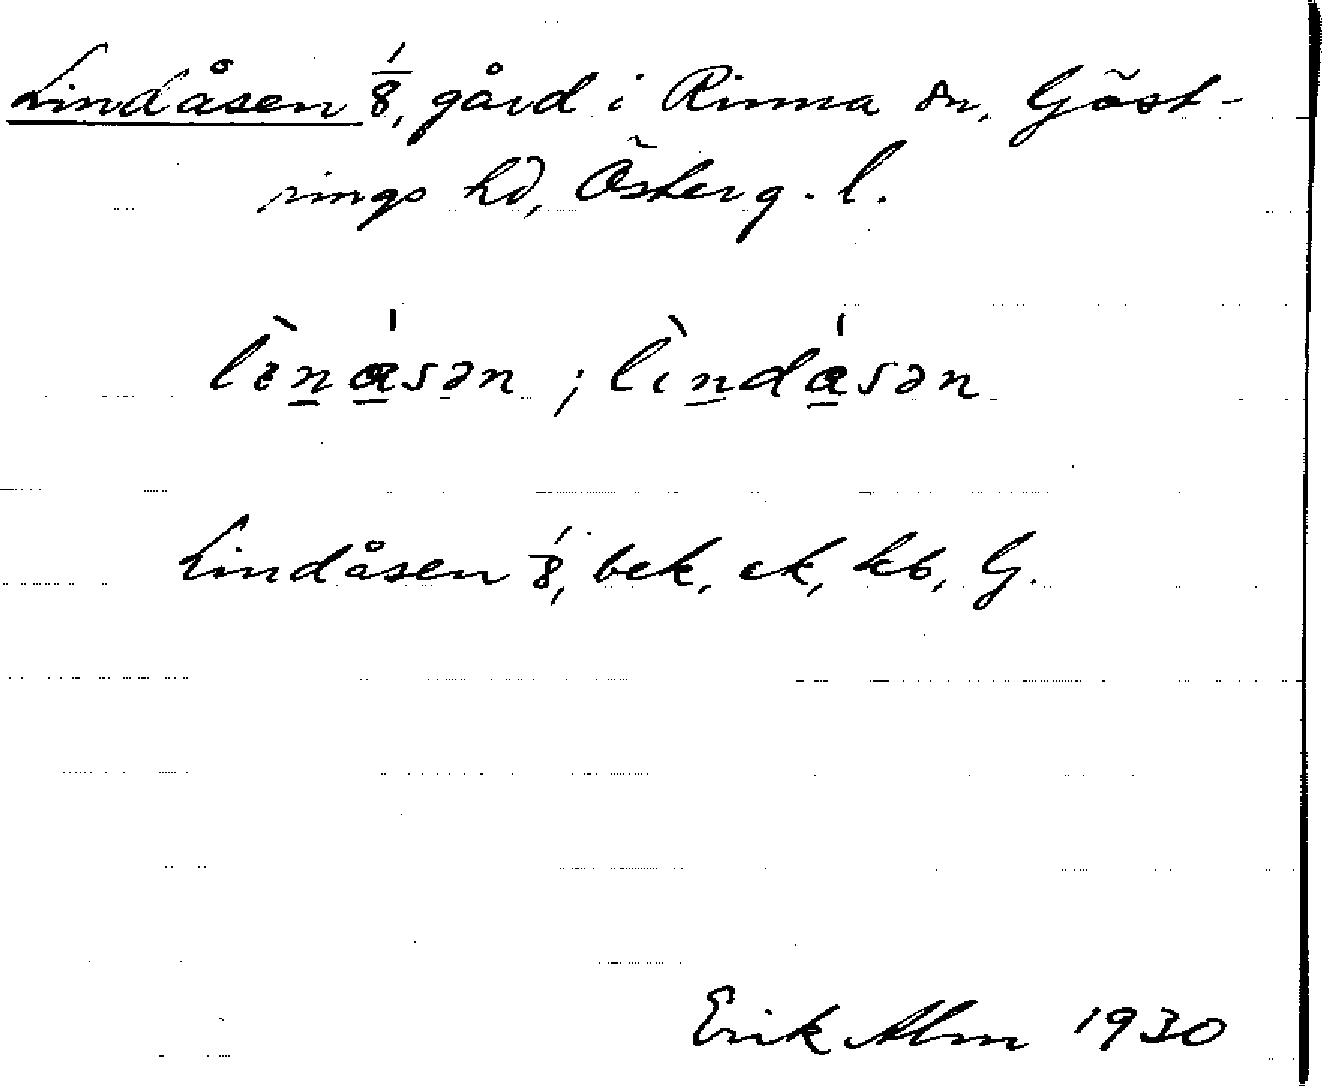 Lindåsen 1/8, gård i Rinna sn, Göst-
rings hd, Österg. l.
lènά̲sən ; lìndά̲sən
Lindåsen 1/8, bek, ek, kb, G.
Erik Alm 1930